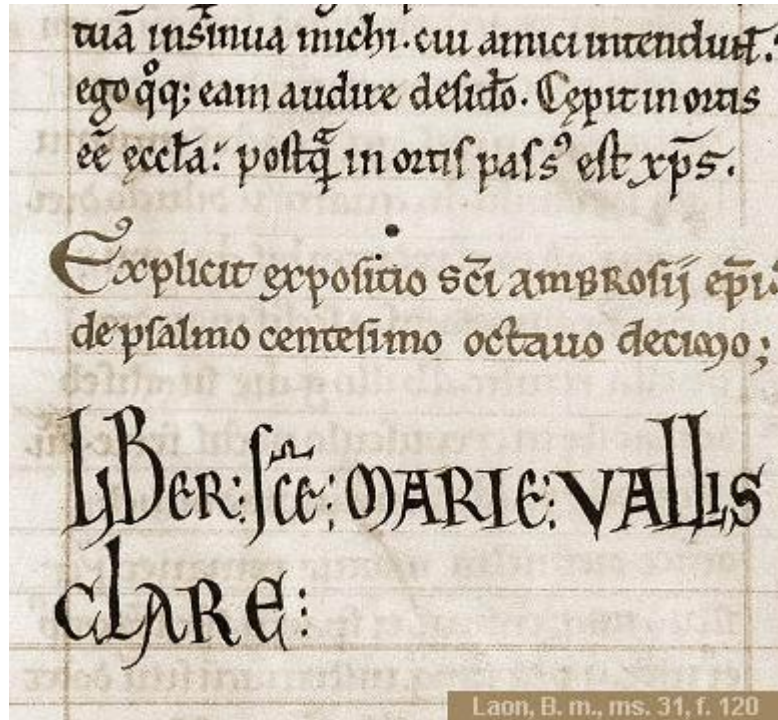 tuā insinua michi. cui amici intendunt.
ego qͦq; eam audire desiďo. Cępit in ortis
eē ęccľa: postqͣ in ortis pasſꝰ est xp̄s.
Explicit expositio sc̄i AMBROSIJ ep̄i
de psalmo centesimo octauo decimo;
LIBER: sc̄e: MARIE: VALLIS
CLARE:
Laon, B. m., ms. 31, f. 120